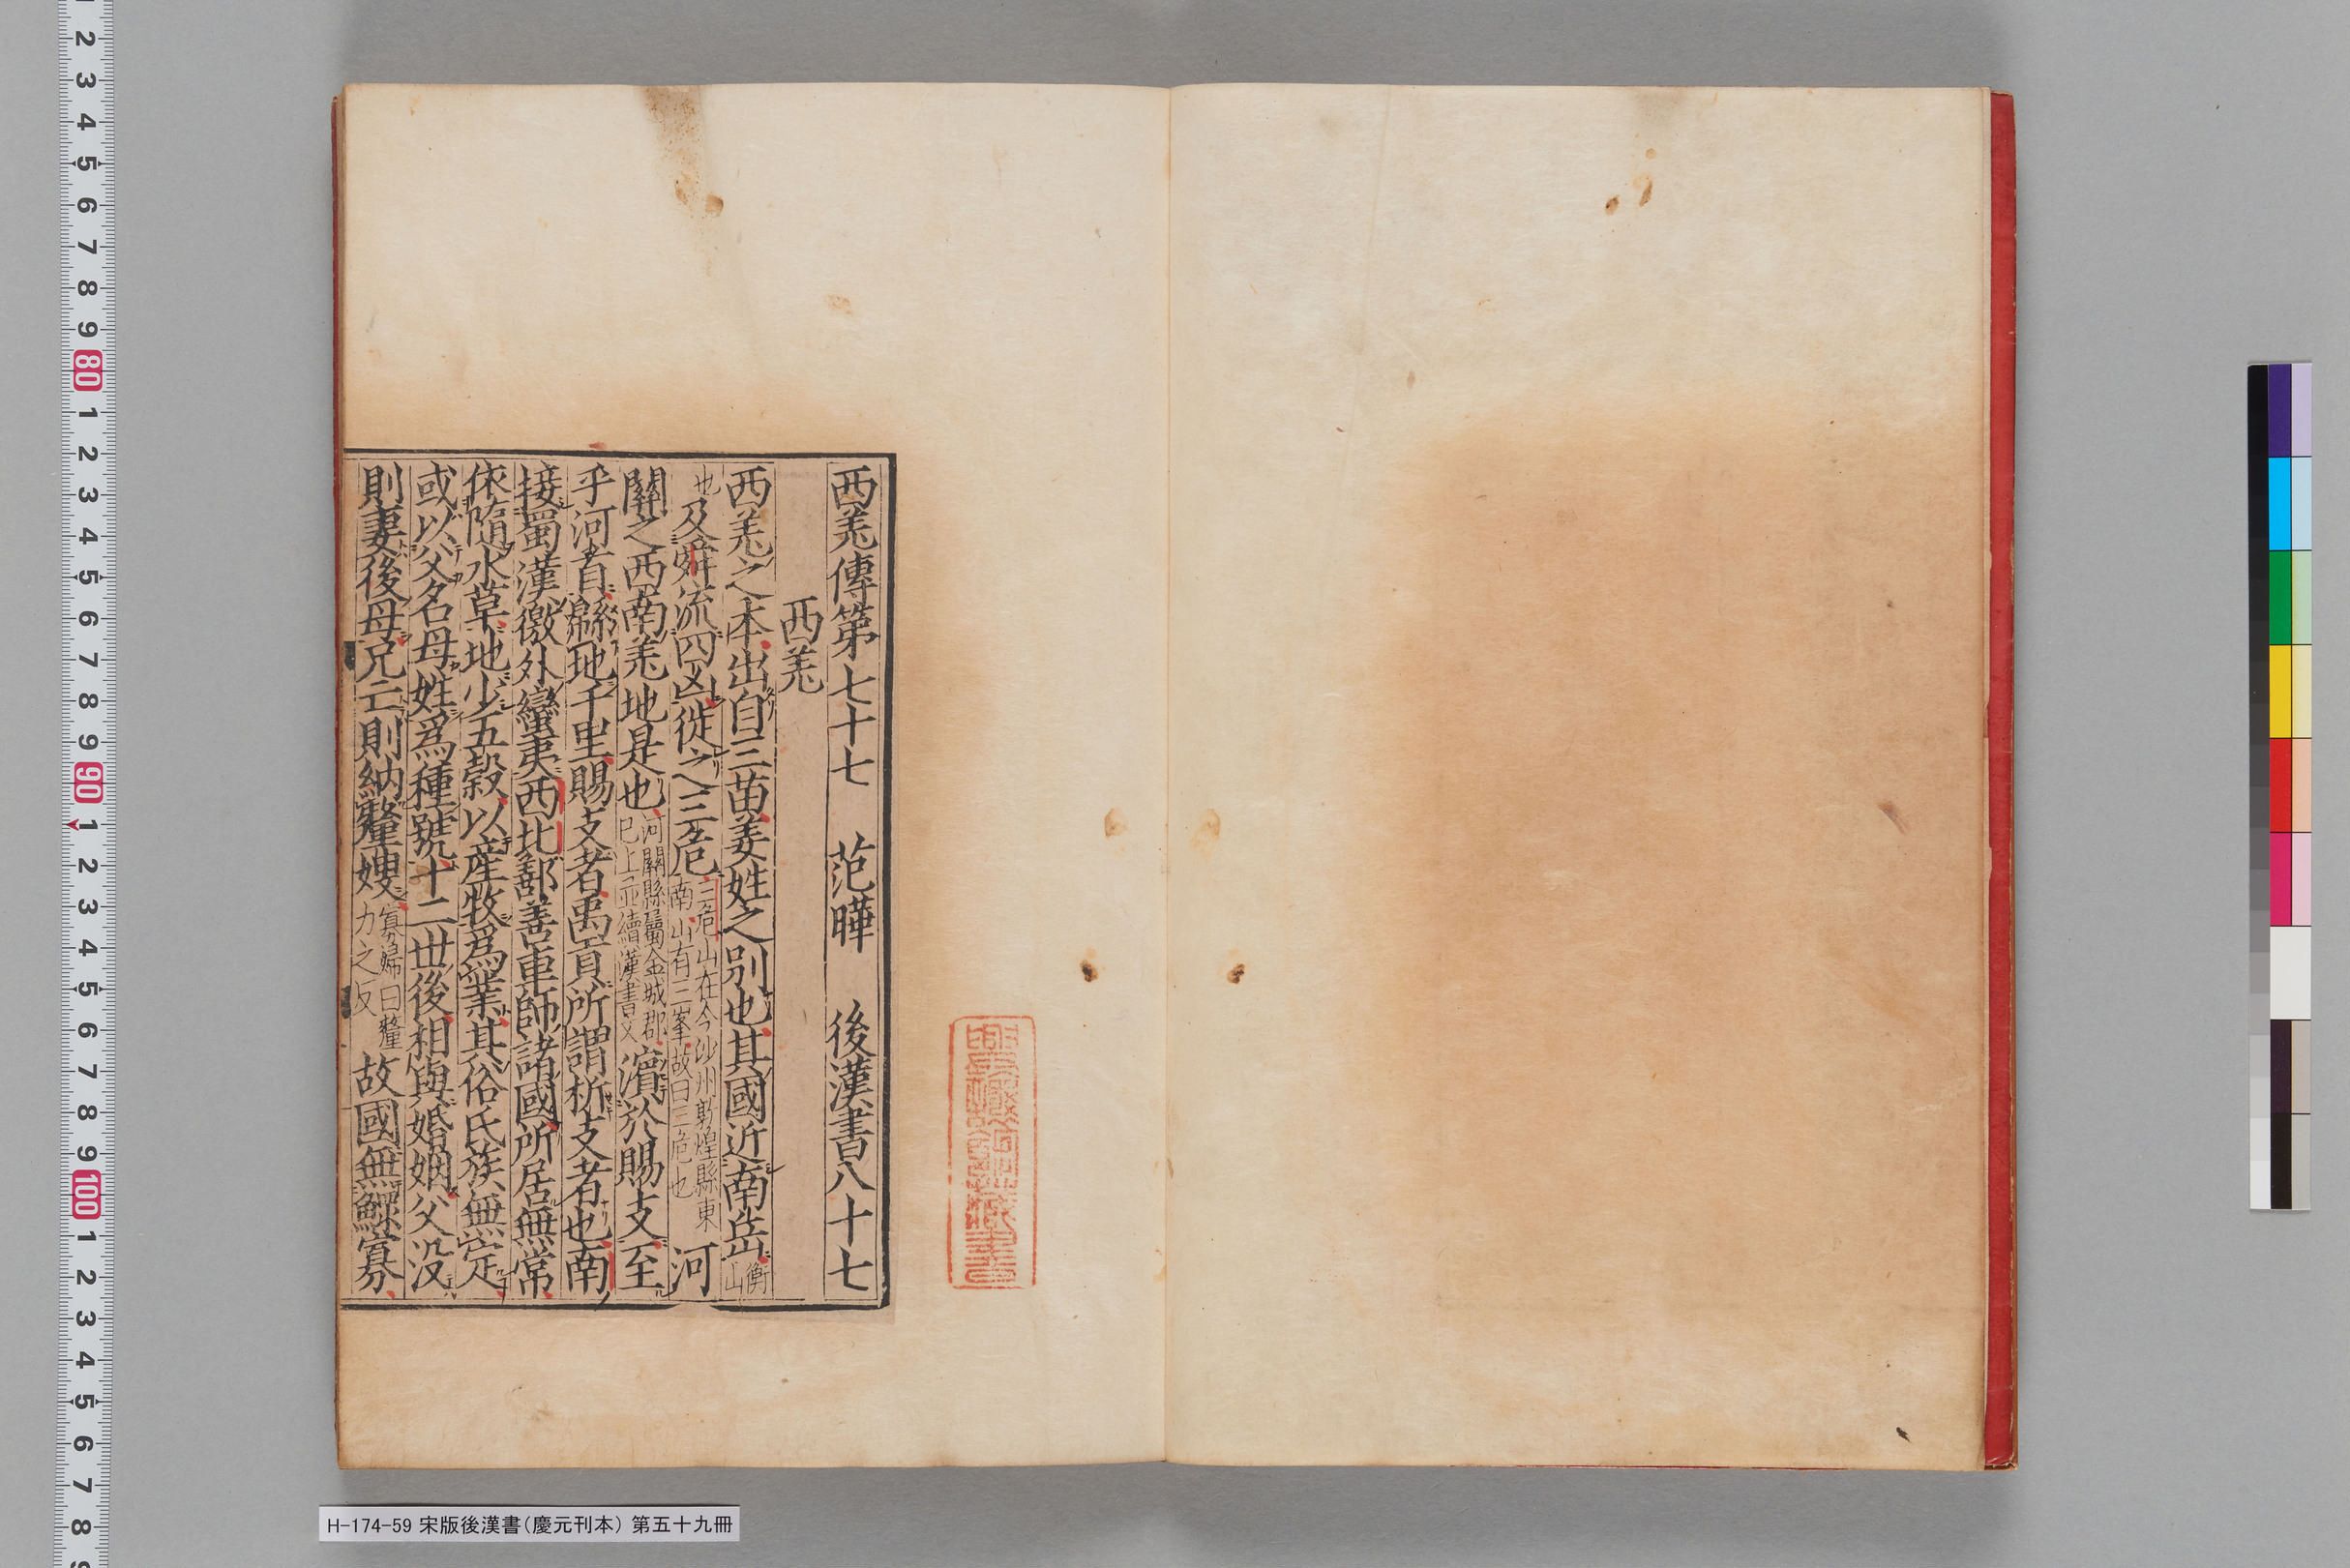 西羌傳第七十七 范曄 後漢書八十七
西羌
西羌之本出自三苗姜姓之別也其國近南岳衡山
也及舜流四凶徙之三危三危山在今沙州敦煌縣東南山有三峯故曰三危也河
關之西南羌地是也河關縣屬金城郡已上並續漢書文濱於賜支至
乎河首緜地千里賜支者禹貢所謂析支者也南
接蜀漢徼外蠻夷西北鄯善車師諸國所居無常
依隨水草地少五穀以產牧爲業其俗氏族無定
或以父名母姓爲種號十二世後相與婚姻父没
則妻後母兄亡則納釐嫂寡婦曰釐力之反故國無鰥寡
H-174-59 宋版後漢書(慶元刊本) 第五十九冊
2 3 4 5 6 7 8 9 80 1 2 3 4 5 6 7 8 9 90 1 2 3 4 5 6 7 8 9 100 1 2 3 4 5 6 7 8 9